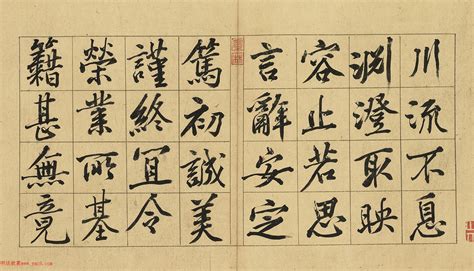 川流不息
渊澄取映
容止若思
言辭安定
篤初誠美
謹終宜令
榮業所基
籍甚無竟